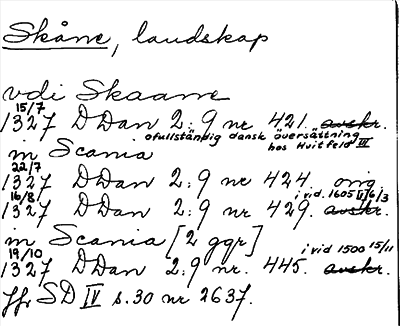 Skåne, landskap
vdi Skaane
15/7
1327 DDan 2:9 nr 421. avskr.
ofullständig dansk översättning
hos Huitfeld III
in Scania
22/7
1327 DDan 2:9 nr 424. orig
16/8 i vid. 1605 11/6/3
1327 DDan 2:9 nr 429. avskr.
in Scania [2 ggr]
19/10 i vid 1500 15/11
1327 DDan 2:9 nr. 445. avskr.
jfr SD IV s. 30 nr 2637.